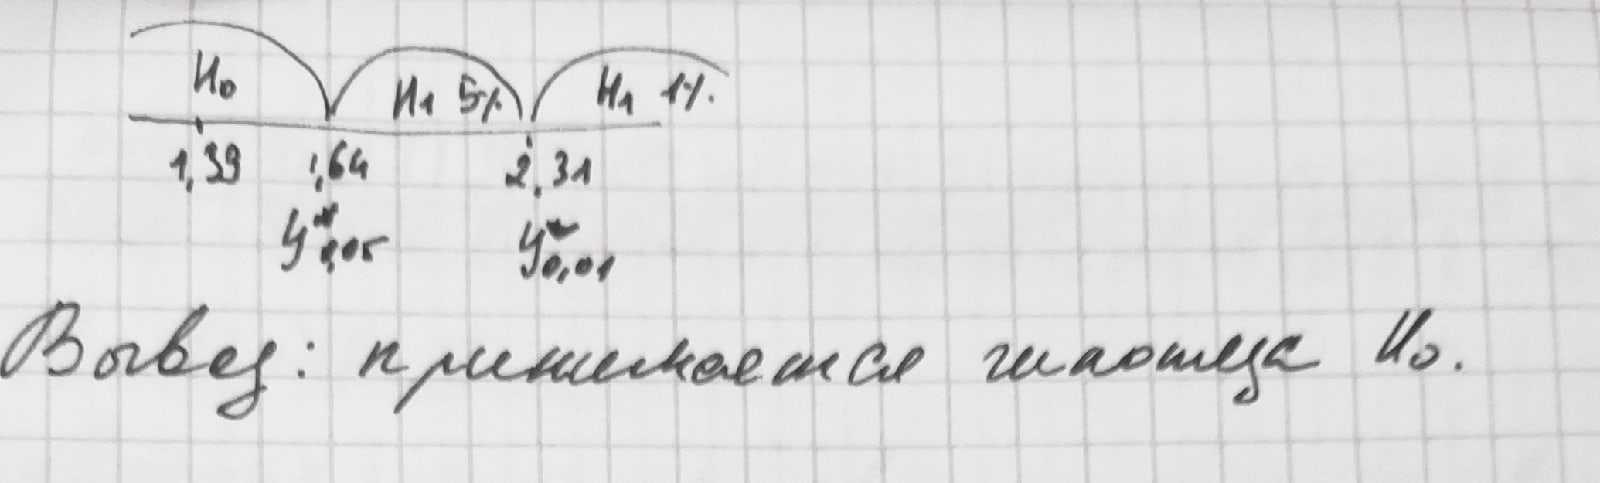 H₀ H₁ 5% H₁ 1%
1,39 1,64 2,31
φ*0,05 φ*0,01
Вывод: принимается гипотеза H₀.